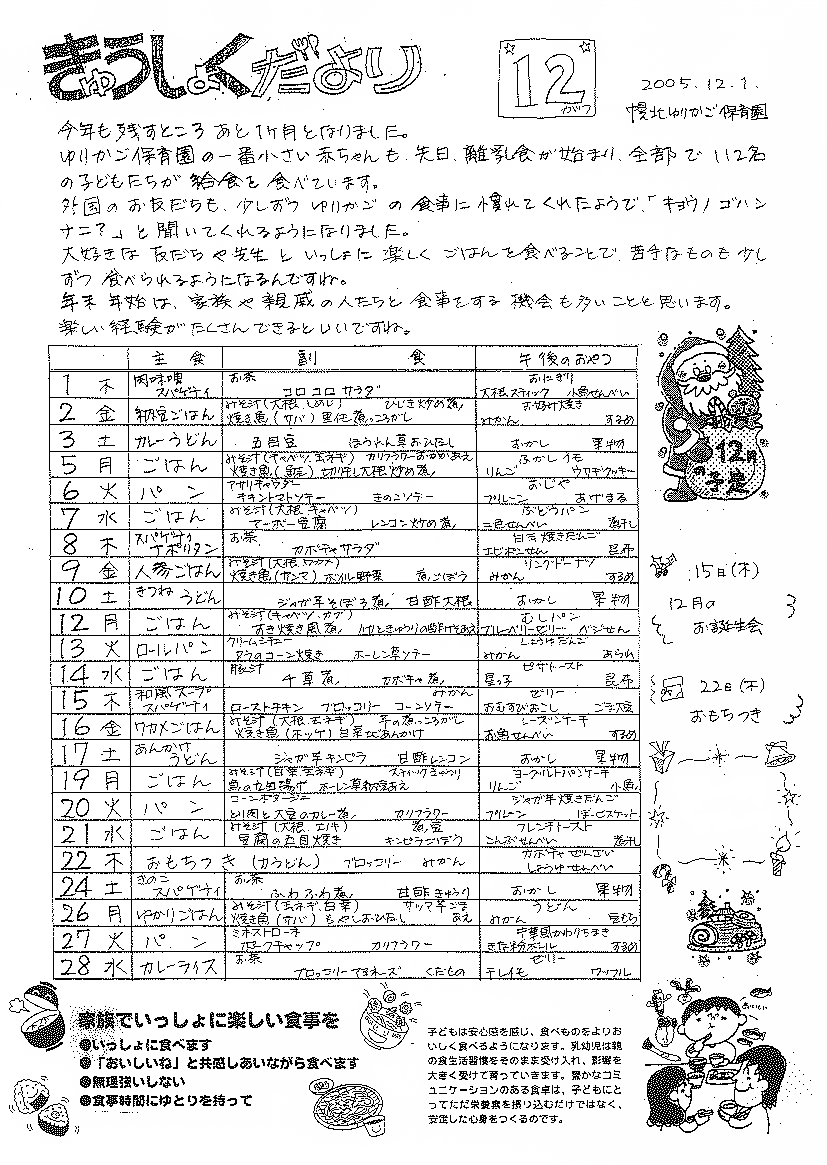 きゅうしょくだより
12
がつ
2005.12.1.
幌北ゆりかご保育園
今年も残すところ あと1ヶ月となりました。
ゆりかご保育園の一番小さい赤ちゃんも、先日、離乳食が始まり、全部で112名
の子どもたちが給食を食べています。
外国のお友だちも、少しずつ ゆりかご の食事に慣れてくれたようで、「キョウノゴハン
ナニ?」と聞いてくれるようになりました。
大好きな友だちや先生といっしょに楽しく ごはんを食べることで、苦手なものも少し
ずつ食べられるようになるんですね。
年末年始は、家族や親戚の人たちと食事をする機会も多いことと思います。
楽しい経験がたくさんできるといいですね。
主食 副食 午後のおやつ
1 木 肉味噌スパゲティ お茶 コロコロサラダ おにぎり 大根スティック 小魚せんべい
2 金 納豆ごはん みそ汁(大根、しめじ) ひじき炒め煮 焼き魚(サバ) 里芋煮っころがし お好み焼き みかん するめ
3 土 カレーうどん 五目豆 ほうれん草おひたし おかし 果物
5 月 ごはん みそ汁(キャベツ、玉ネギ) カリフラワーおかかあえ 焼き魚(鮭) 切干し大根炒め煮 ふかしイモ りんご ウサギクッキー
6 火 パン アサリチャウダー チキントマトソテー きのこソテー おじや プルーン あげまる
7 水 ごはん みそ汁(大根、キャベツ) マーボー豆腐 レンコン炒め煮 ぶどうパン 三色せんべい 煮干し
8 木 スパゲティナポリタン お茶 カボチャサラダ 白石焼きだんご エビポンせん 昆布
9 金 人参ごはん みそ汁(大根、ワカメ) 焼き魚(サンマ) ボイル野菜 煮ごぼう リングドーナツ みかん するめ
10 土 きつねうどん ジャガ芋そぼろ煮 甘酢大根 おかし 果物
12 月 ごはん みそ汁(キャベツ、カブ) すき焼き風煮 むしパン ブルーベリーゼリー ベジせん
13 火 ロールパン クリームシチュー タラのコーン焼き ホーレン草ソテー しょうゆだんご みかん あられ
14 水 ごはん 豚汁 千草煮 カボチャ煮 ピザトースト 星っ子 昆布
15 木 和風スープスパゲティ みかん ローストチキン ブロッコリー コーンソテー ゼリー おむすびおこし ごま大豆
16 金 ワカメごはん みそ汁(大根、玉ネギ) 芋の煮っころがし 焼き魚(ホッケ) 白菜そばあんかけ レーズンケーキ お魚せんべい するめ
17 土 あんかけうどん ジャガ芋キンピラ 甘酢レンコン おかし 果物
19 月 ごはん みそ汁(白菜、玉ネギ) スティックきゅうり 魚の立田揚げ ホーレン草納豆あえ ヨーグルトパンケーキ りんご 小魚
20 火 パン コーンポタージュ とり肉と大豆のカレー煮 カリフラワー ジャガ芋焼きだんご プルーン ぱーこビスケット
21 水 ごはん みそ汁(大根、エノキ) 煮豆 豆腐の五目焼き キンピラごぼう フレンチトースト こんぶせんべい 煮干し
22 木 おもちつき(力うどん) ブロッコリー みかん カボチャぜんざい しょうゆせんべい
24 土 きのこスパゲティ お茶 ふわふわ煮 甘酢きゅうり おかし 果物
26 月 ゆかりごはん みそ汁(玉ネギ、白菜) サツマ芋ごまあえ 焼き魚(サバ) もやしおひたし うどん みかん 豆もち
27 火 パン ミネストローネ ポークチャップ カリフラワー 中華風かわりちまき きな粉ボール するめ
28 水 カレーライス お茶 ブロッコリーマヨネーズ くだもの ゼリー 干しイモ ワッフル
12月の予定
15日(木)
12月の
お誕生会
22日(木)
おもちつき
家族でいっしょに楽しい食事を
●いっしょに食べます
●「おいしいね」と共感しあいながら食べます
●無理強いしない
●食事時間にゆとりを持って
子どもは安心感を感じ、食べものをよりお
いしく食べるようになります。乳幼児は親
の食生活習慣をそのまま受け入れ、影響を
大きく受けて育っていきます。豊かなコミ
ュニケーションのある食卓は、子どもにと
ってただ栄養素を摂り込むだけではなく、
安定した心身をつくるのです。